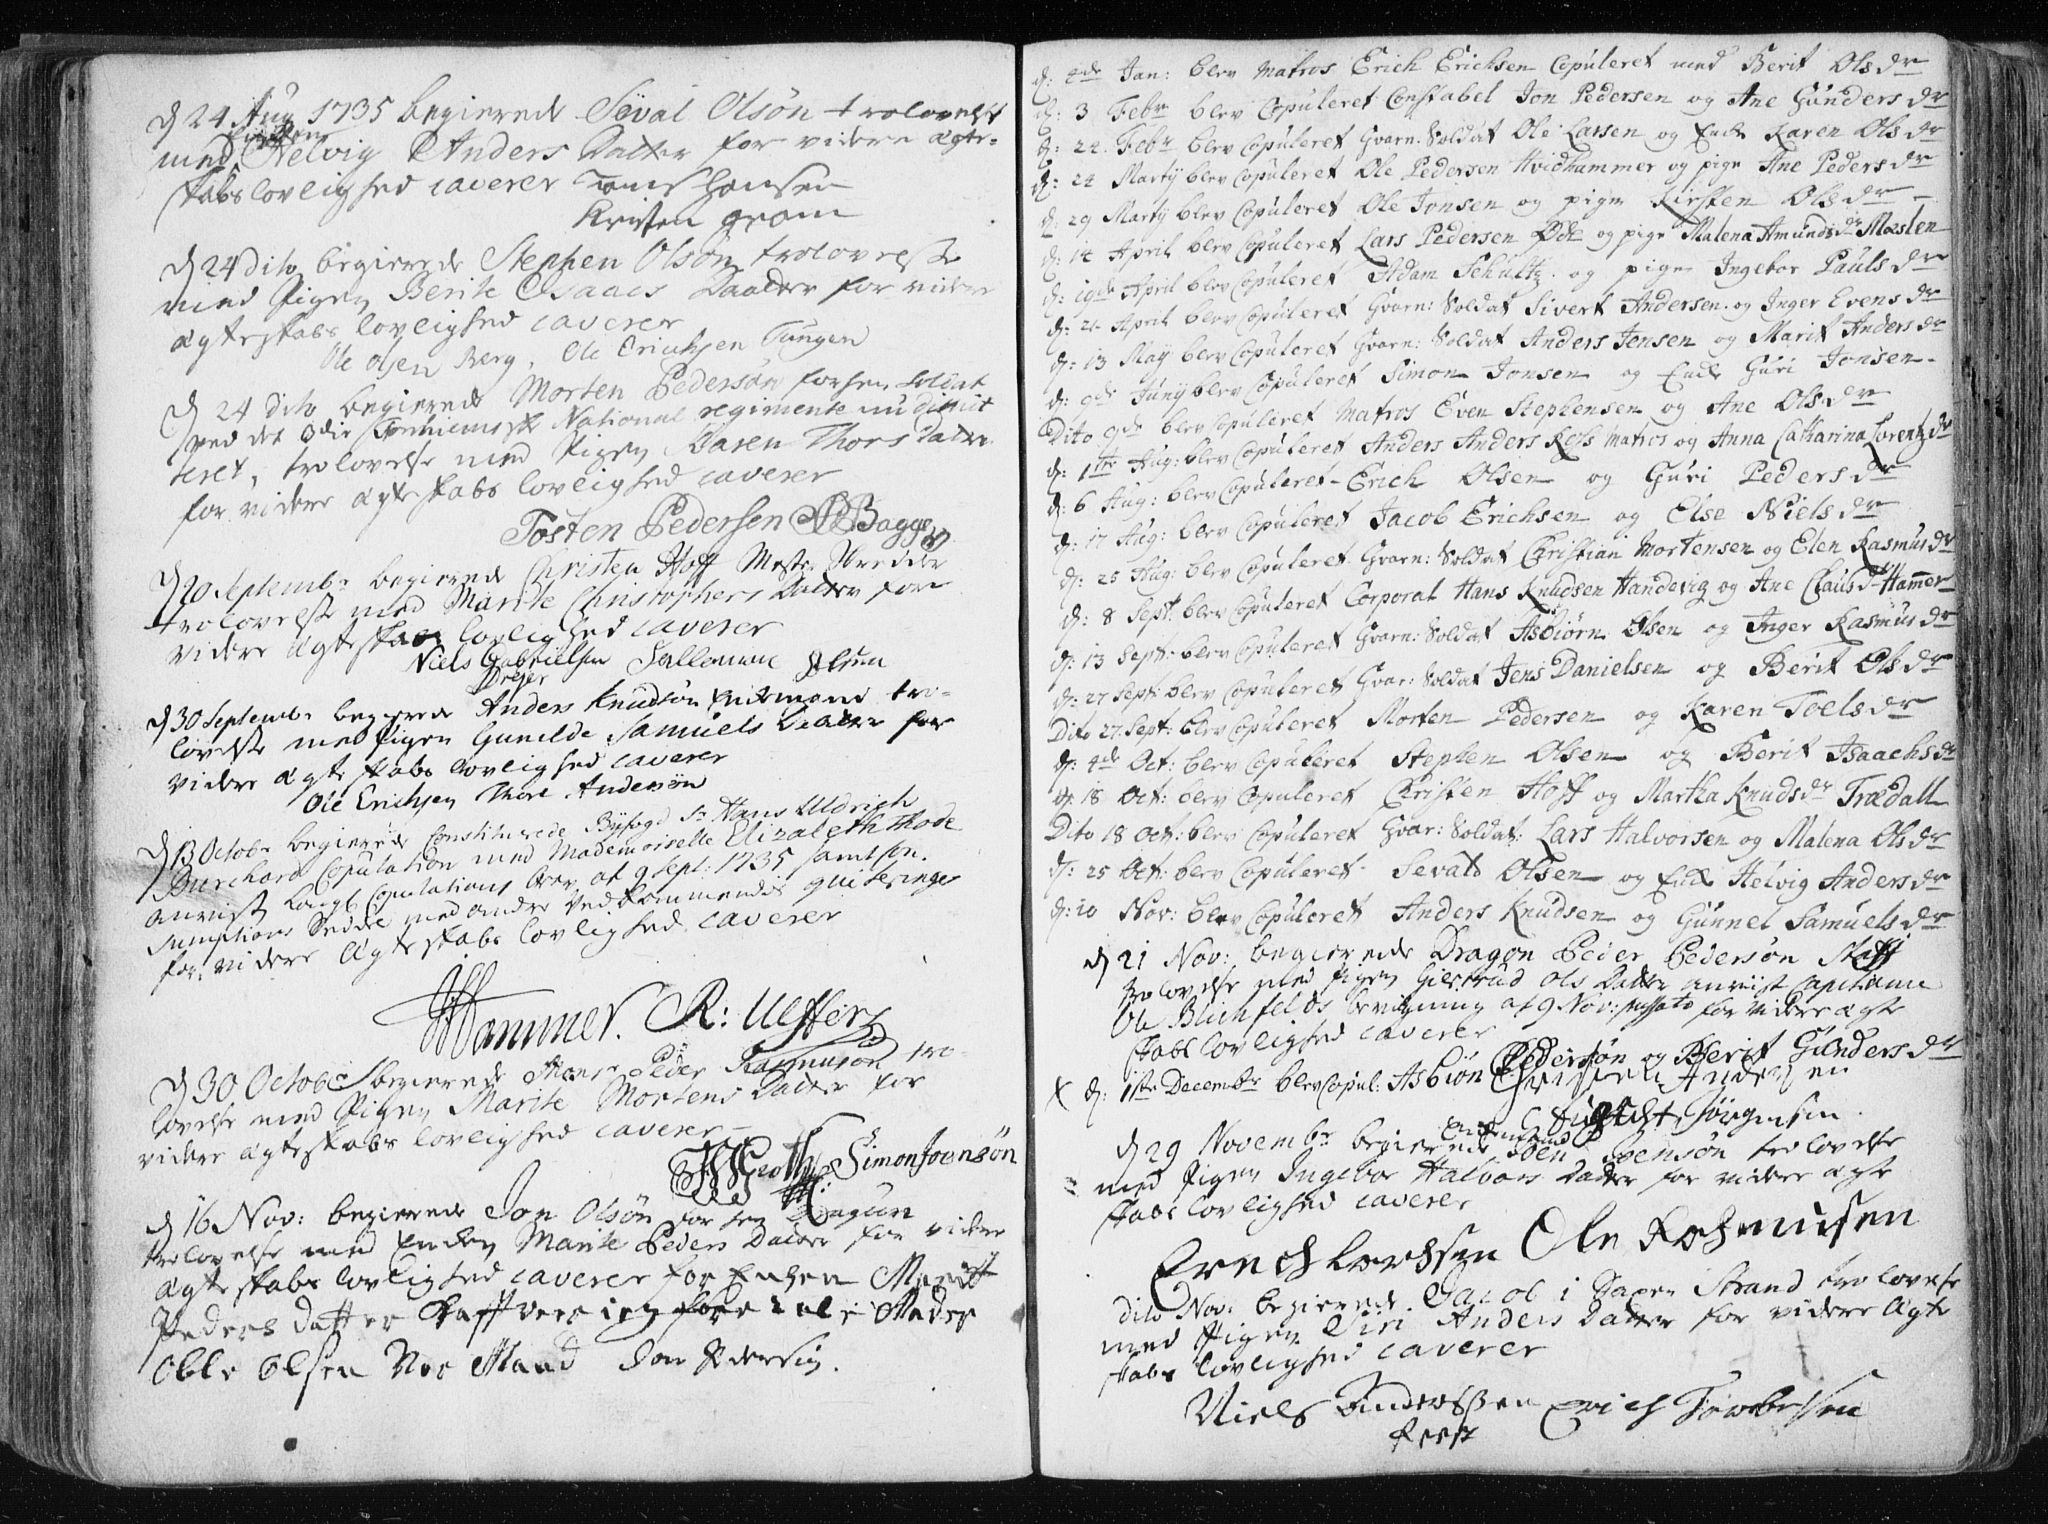 d 24 Aug 1735 begierede Sëval Olsön trolovelse
med Enken Helvig Anders Datter for videre ægte-
skabs lovlighed caverer Toms Hansen
Kristen Gram
d 24 dito begierede Stephen Olsön trolovelse
med Pigen Berite Isaacs Daatter for videre
ægteskabs lovlighed caverer
Ole Olsen Berg, Ole Erichsen Tungen
d 24 dito begierede Morten Pedersön forhen Soldat
ved det 3die Trondhiemske National regimente nu dimit
teret, trolovelse med Pigen Karen Thors Datter
for videre ægteskabs lovlighed caverer
Tosten Pedersen Bagge
d 20 Septembr begierede Christen Hoff Mester Skredder
trolovelse med Marite Christophers Datter for
videre ægteskabs lovlighed caverer
Niels Gabrielsen Sallomon Olsen
Dreyer
d 30 Septembr begierede Anders Knudsön Enkemand tro-
lovelse med Pigen Gunilde Samuels Datter for
videre ægteskabs lovlighed caverer
Ole Erichsen Thore Andersön
d 13 Octobr begierede Constituerede Byfogd Sr Hans Uldrich
Burchard Copulation med Mademoiselle Elizabeth Thode
anvist Kongl Copulations brev af 9 Sept: 1735 samt con-
sumptions Seddel med andre vedkommendes qviteringer
for videre Ægteskabs lovlighed caverer
Hammer. R: Ueffer
d 30 Octobr begierede Peder Rasmusön tro-
lovelse med Pigen Marite Mortens Datter for
videre ægteskabs lovlighed caverer
Groth Simon Joensön
d 16 Nov: begierede Jon Olsön forhen Dragun
trolovelse med Enken Marite Peders Datter for videre
ægteskabs lovlighed caverer for Enken Meritt
Peders datter
Olle Olsen Jon Pedersön.
d: 4de Jan: blev Matros Erich Erichsen Copuleret med Berit Ols dr
d: 3 Febr blev Copuleret Constabel Jon Pedersen og Ane Gunders dr
d: 22. Febr blev Copuleret Gvarn: Soldat Ole Larsen og Enke Karen Ols dr
d: 24 Martij blev Copuleret Ole Pedersen Hvidhammer og pige Ane Peders dr
d: 29 Martij blev Copuleret Ole Jonsen og pige Kirsten Ols dr -
d: 14 April blev Copuleret Lars Pedersen Øde og pige Malena Amunds dr Moslen
d: 19de April blev Copuleret Adam Schultz og pige Ingebor Pauls dr
d: 21 April blev Copuleret Gvarn: Soldat Sivert Andersen og Inger Evens dr
d: 13 Maij blev Copuleret Gvarn: Soldat Anders Jensen og Marit Anders dr
d: 9de Junij blev Copuleret Simon Jonsen og Enke Guri Jonsen.
Dito 9de blev Copuleret Matros Even Stephensen og Ane Ols dr
d: 1ste Aug: blev Copuleret Anders Anders Rofs Matros og Anna Catharina Lorentz dr
d: 6 Aug: blev Copuleret Erich Olsen og Guri Peders dr
d: 17 Aug: blev Copuleret Jacob Erichsen og Else Niels dr
d: 25 Aug: blev Copuleret Gvarn: Soldat Christian Mortensen og Elen Rasmus dr
d: 8 Sept: blev Copuleret Corporal Hans Knudsen Handevig og Ane Claus dr Hammer
d: 13 Sept: blev Copuleret Gvarn: Soldat Asbiørn Olsen og Inger Rasmus dr
d: 27 Sept: blev Copuleret Gvar: Soldat Jens Danielsen og Berit Ols dr
Dito 27. Sept: blev Copuleret Morten Pedersen og Karen Toels dr
d: 4de Oct: blev Copuleret Stephen Olsen og Berit Isaachs dr
d: 18 Oct: blev Copuleret Christen Hoff og Martha Knuds dr Trædall
Dito 18 Oct: blev Copuleret Gvar: Soldat: Lars Halvorsen og Malena Ols dr
d: 25 Oct: blev Copuleret Sevald Olsen og Enke Helvig Anders dr
d: 20 Nov: blev Copuleret Anders Knudsen og Gunnel Samuels dr
d 21 Nov: begierede Dragon Peder Pedersön Staff
trolovelse med Pigen Giertrud Ols Datter anvist Capitaine
Ole Blichfelds bevilgning af 9 Nov: passato for videre ægte
skabs lovlighed caverer
x d: 1ste Decembr blev Copul: Asbiön Pedersön og Berit Gunders dr
Christen Andersen
Jörgensen
d 29 Novembr begierede Enkemand Sven Svensön trolovelse
med Pigen Ingebor Halvors Datter for videre ægte
skabs lovlighed caverer
Erich Larchsen Ole Rasmusen
dito Nov: begierede Jacob i Sagen Strand trolovelse
med Pigen Siri Anders Datter for videre Ægte
skabs lovlighed caverer
Niels Anderssen Erich Torbersen